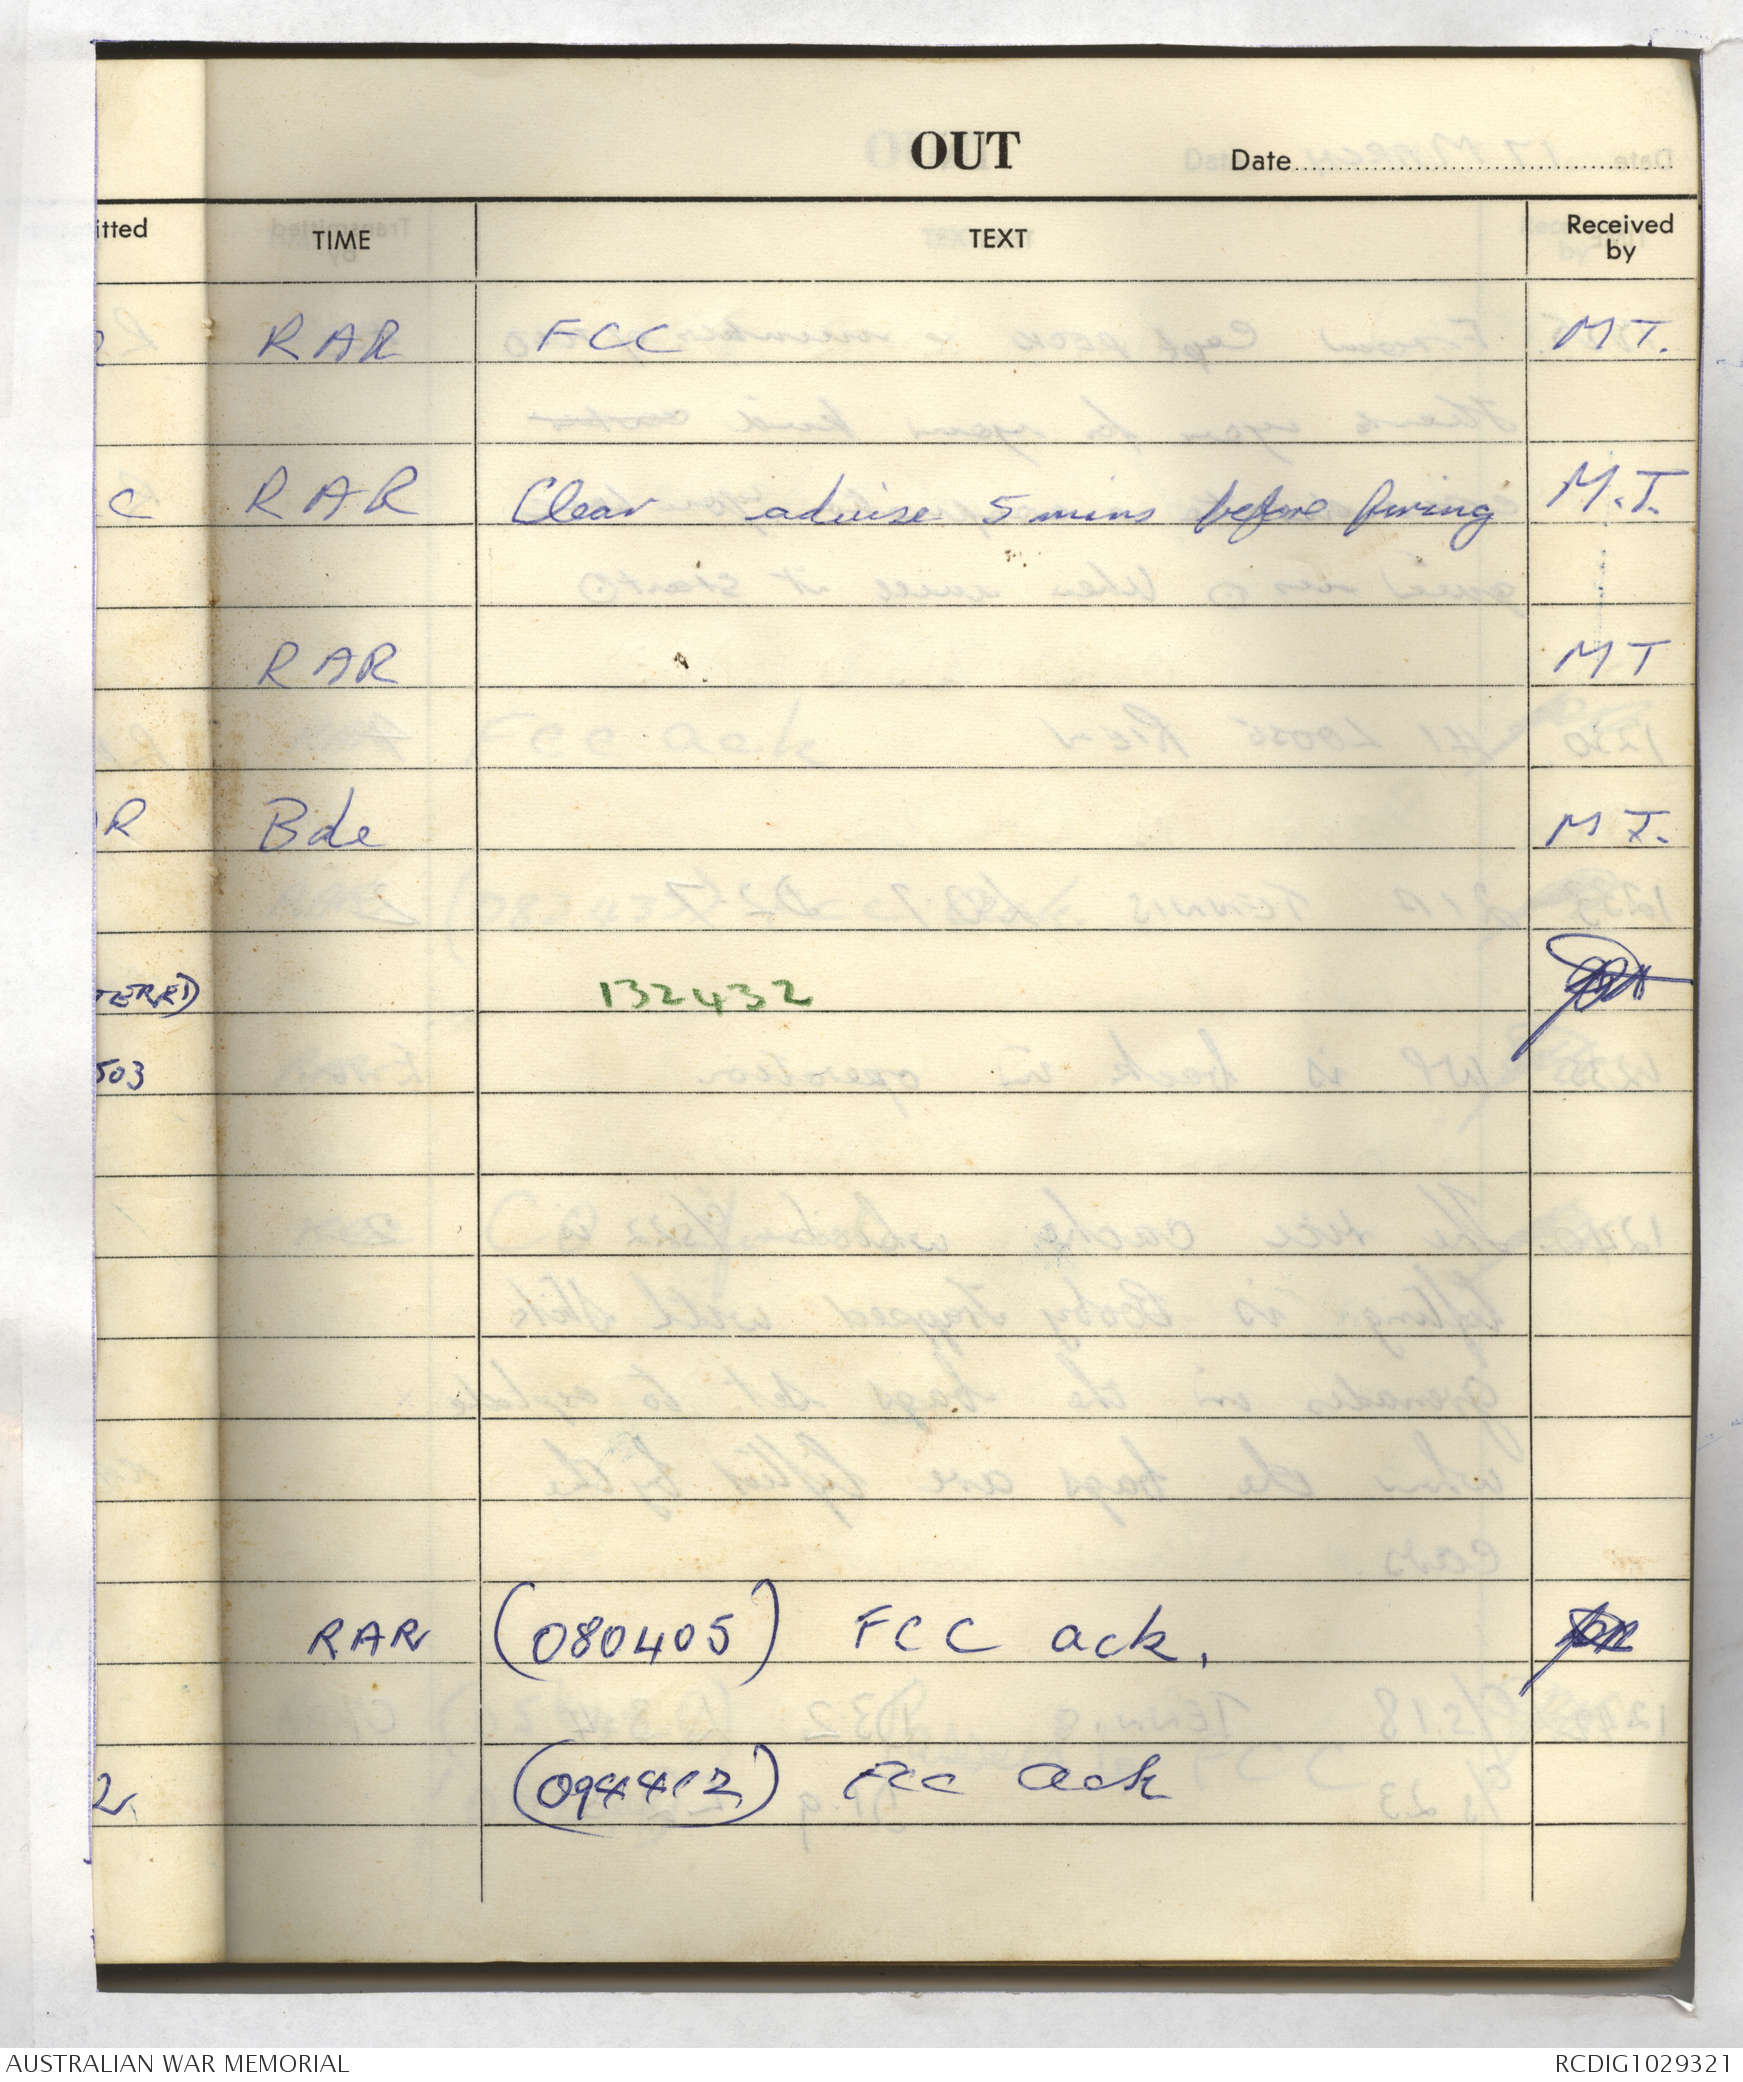 OUT
Date
itted TIME TEXT Received by
R RAR FCC MT.
C RAR Clear advise 5 mins before firing M.T.
RAR MT
R Bde MT.
TERED) 132432
503
RAR (080405) FCC ack.
(094412) FCC ack
AUSTRALIAN WAR MEMORIAL RCDIG1029321